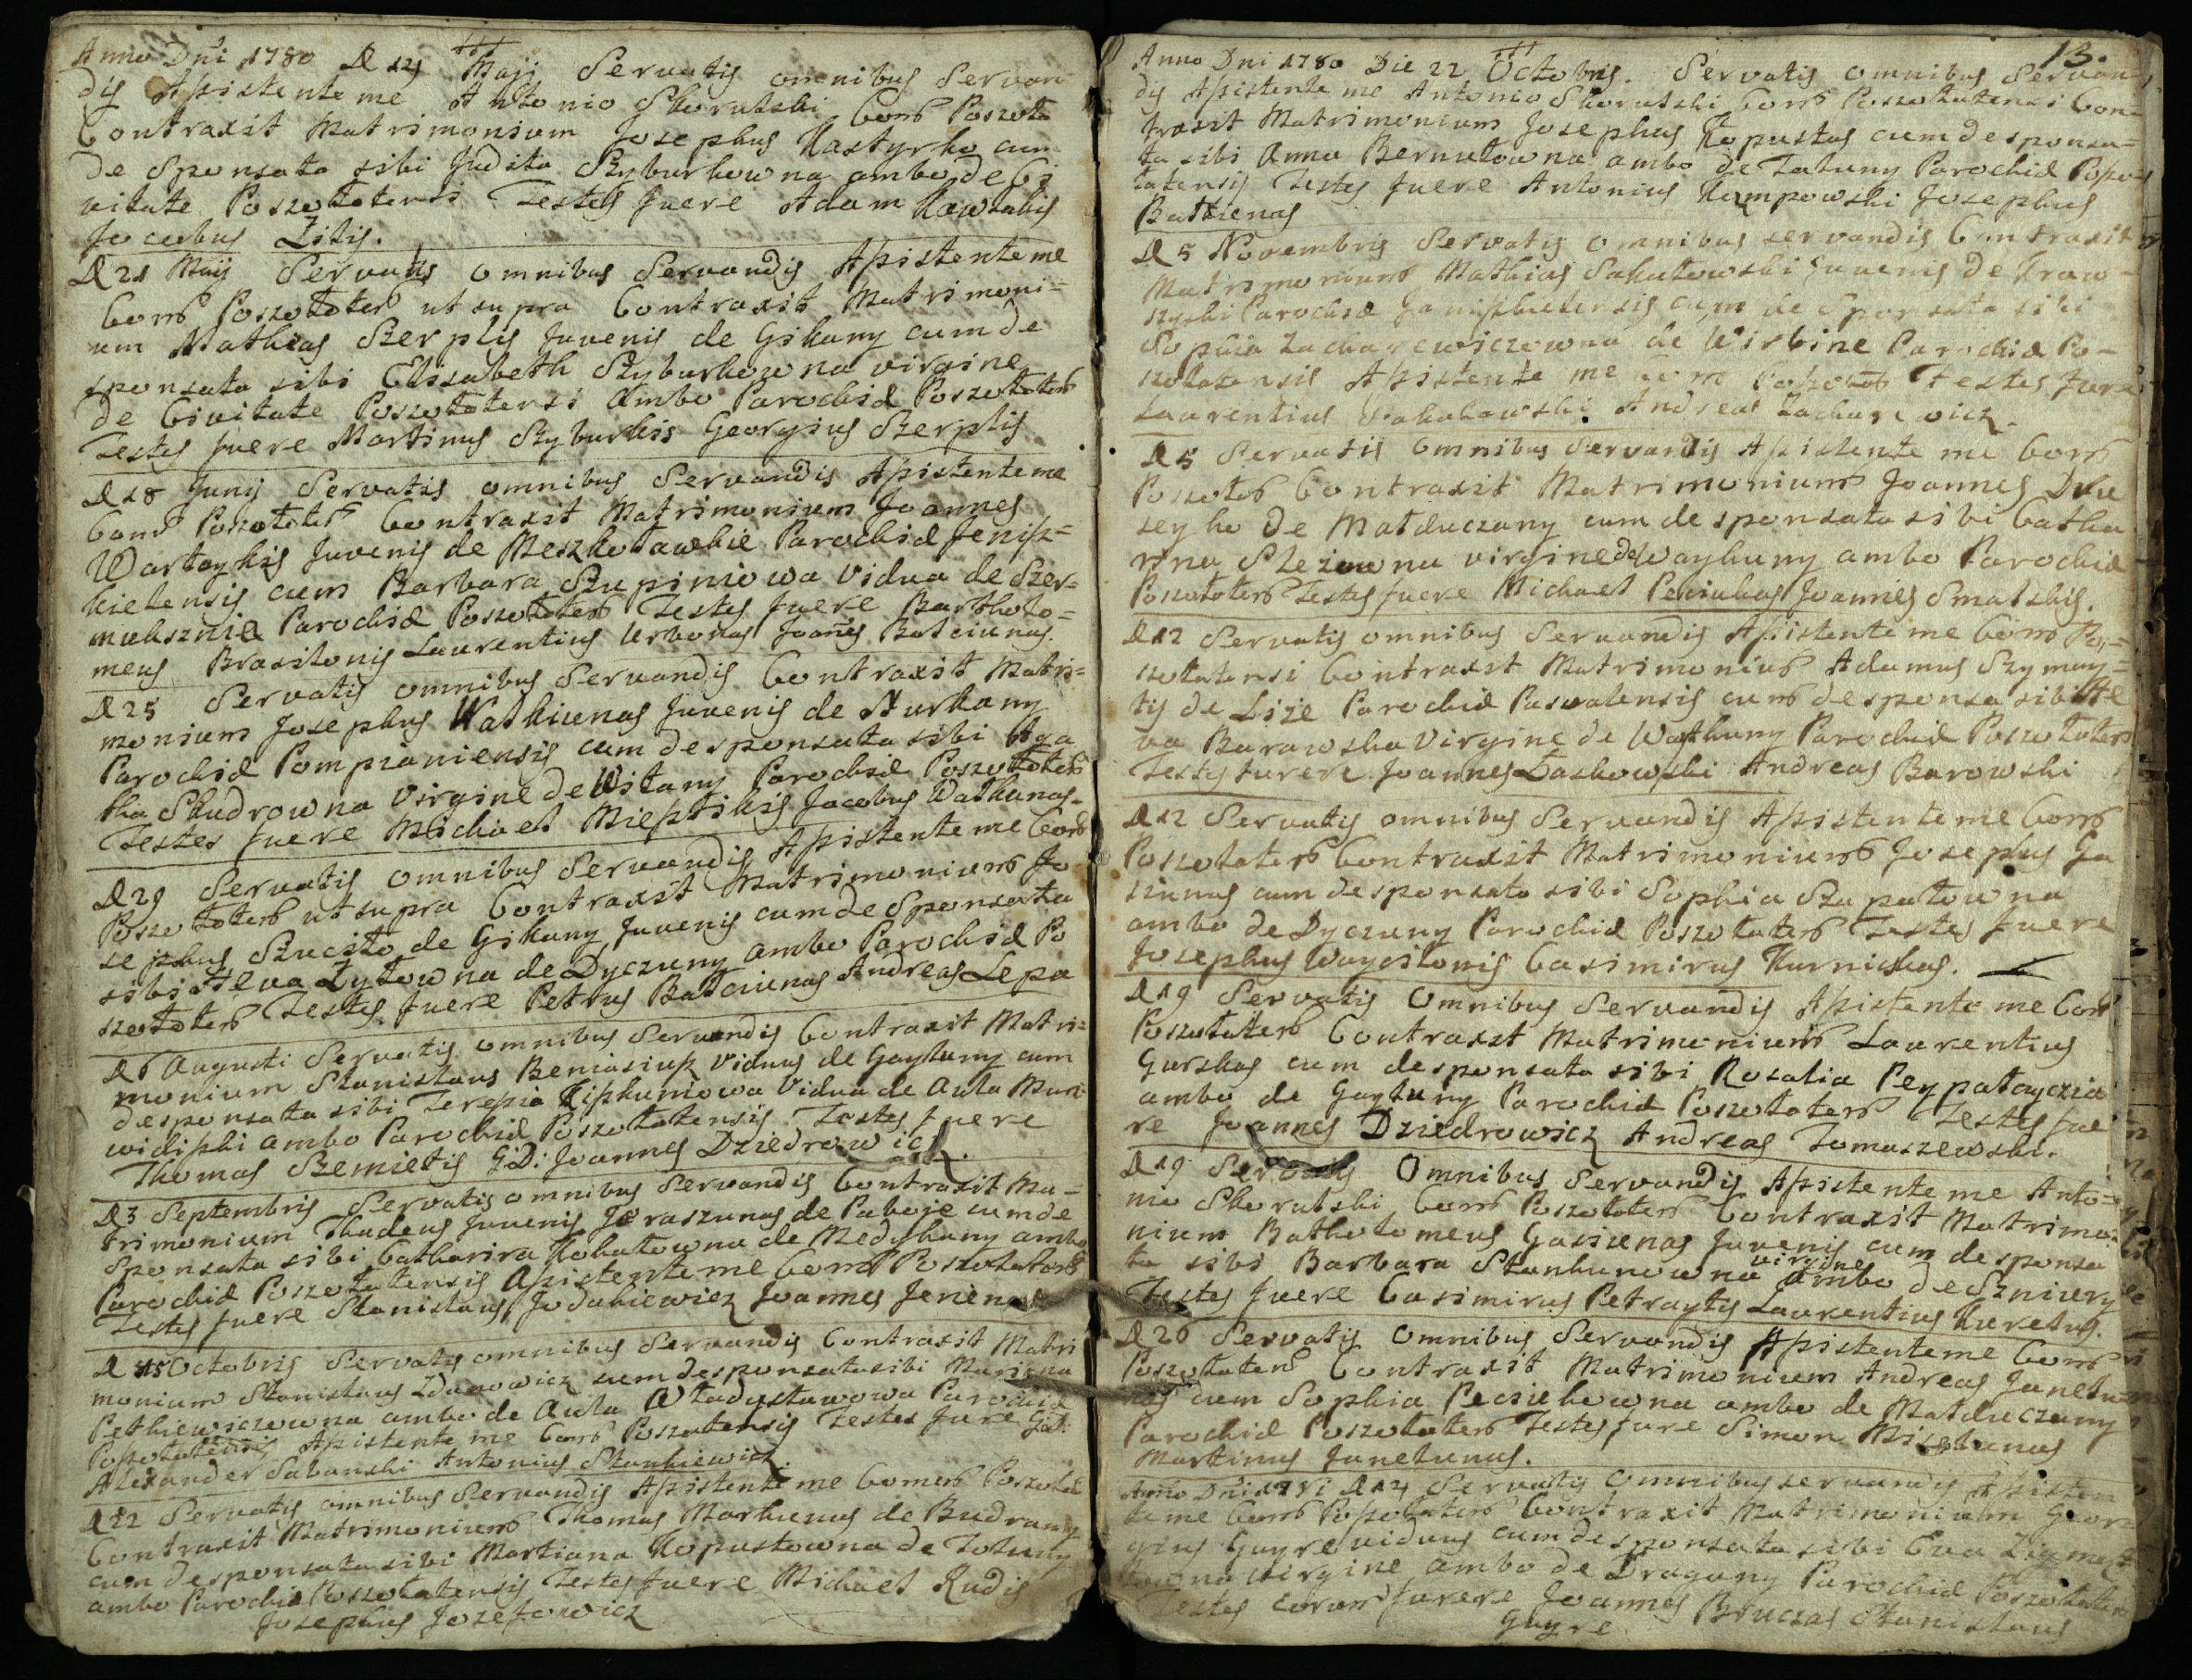 Anno Dni 1780 D 14 Maji Servatis omnibus Servan
dis Assistente me Antonio Skorulski Com Poszoło
Contraxit Matrimonium Josephus Kastyrko cum
de Sponsata sibi Judita Szyburkowna ambo de Ci
vitate Poszołotensi Testes fuere Adam Kawtakis
Jacobus Zilis.
D 21 Maij Servatis omnibus Servandis Assistente me
Com Poszołoten ut supra Contraxit Matrimoni=
um Mathias Szerplis Juvenis de Gikany cum de
sponsata sibi Elisabeth Szyburkowna virgine
de Civitate Poszołotensi Ambo Parochiæ Poszołoten
Testes fuere Martinus Szyburkis Georgius Szerplis
D 18 Junij Servatis omnibus Servandis Assistente me
Com Poszołoten Contraxit Matrimonium Joannes
Wartaykis Juvenis de Meszkoławkie Parochiæ Jenisz=
kielensis cum Barbara Szupiniowa Vidua de Szer=
muksznie Parochiæ Poszołoten Testes fuere Bartholo=
meus Braxitonis Laurentius Urbonas Joanes Balciunas.
D 25 Servatis omnibus Servandis Contraxit Matri=
monium Josephus Wathiunas Juvenis de Murkany
Parochiæ Pompianiensis cum desponsata sibi Aga
tha Skudrowna Virgine de Witany Parochiæ Poszołoten
Testes fuere Michael Miepsikis Jacobus Wathunas.
D 29 Servatis omnibus Servandis Assistente me Com
Poszołoten ut supra Contraxit Matrimonium Jo
sephus Szucito de Gikany Juvenis cum de Sponsata
sibi Heva Zytowna de Dyczuny ambo Parochiæ Po
szołoten Testes fuere Petrus Balciunas Andreas Lepa
D 6 Augusti Servatis omnibus Servandis Contraxit Matri=
monium Stanislaus Beniasius Viduus de Gaytuny cum
desponsata sibi Teresia Cipkuniowa Vidua de Aula Mun
widiszki ambo Parochiæ Poszołotensis Testes fuere
Thomas Szemietis G:D: Joannes Dziedrowicz.
D 3 Septembris Servatis omnibus Servandis Contraxit Ma=
trimonium Thadeus Juvenis Jeraszunas de Paboie cum de
Sponsata sibi Catharina Kokałowna de Medykuny ambo
Parochiæ Poszołotensis Assistente me Com Poszołoten
Testes fuere Stanislaus Jodakiewicz Joannes Jeriena
D 15 Octobris Servatis omnibus Servandis Contraxit Matri
monium Stanislaus Zdanowicz cum desponsata sibi Marjana
Pethiewiczowna ambo de Aula Władysławowa Parochiæ
Poszołotensis Assistente me Com Poszołotensis Testes fuere
Alexander Sabanski Antonius Stankiewicz.
D 22 Servatis omnibus Servandis Assistente me Comen Poszoło
Contraxit Matrimonium Thomas Markunas de Budrany
cum desponsata sibi Martiana Kopustowna de Totuny
ambo Parochiæ Poszołotensis Testes fuere Michael Rudis
Josephus Jozefowicz
13.
Anno Dni 1780 Die 22 Octobris. Servatis omnibus Servan=
dis Assistente me Antonio Skorulski Com Poszołotensi Con=
traxit Matrimonium Josephus Kopustas cum desponsa=
ta sibi Anna Bernatowna ambo de Tatuny Parochiæ Poszo
łotensis Testes fuere Antonius Kempowski Josephus
Batkienas
D 5 Novembris Servatis omnibus servandis Contraxit
Matrimonium Mathias Sakałowski Juvenis de Kraw=
szyszki Parochiæ Janiszkielensis cum de Sponsata sibi
Sophia Zacharewiczowna de Wirbine Parochiæ Po=
szołotensis Assistente me Testes fuere
Laurentius Sakałowski Andreas Zacharewicz.
D 5 Servatis Omnibus Servandis Assistente me Com
Poszołoten Contraxit Matrimonium Joannes Dru
seyko de Matduczany cum desponsata sibi Catha
rina Sleżowna virgine de Waykuny ambo Parochiæ
Poszołoten Testes fuere Michael Peciukas Joannes Smalskis.
D 12 Servatis omnibus Servandis Assistente me Com Po=
szołotensi Contraxit Matrimonium Adamus Szymay=
tis de Liże Parochiæ Paswalensis cum desponsa sibi He
va Barawska Virgine de Wathuny Parochiæ Poszołoten
Testes fuere Joannes Łaskowski Andreas Barowski
D 12 Servatis omnibus Servandis Assistente me Com
Poszołoten Contraxit Matrimonium Josephus Ja
sziunas cum desponsata sibi Sophia Szapałowna
ambo de Dyczuny Parochiæ Poszołoten Testes fuere
Josephus Waycitonis Casimirus Kurnickas.
D 19 Servatis Omnibus Servandis Assistente me Com
Poszołoten Contraxit Matrimonium Laurentius
Gurskas cum desponsata sibi Rosalia Peypałayczia
ambo de Gaytuny Parochiæ Poszołoten Testes fue
re Joannes Dziedrowicz Andreas Tomaszewski.
D 19 Servatis Omnibus Servandis Assistente me Anto=
nio Skorulski Com Poszołoten Contraxit Matrimo=
nium Bartholomeus Gasiunas Juvenis cum desponsa
ta sibi Barbara Stankunowna virgine ambo de Szniury
Testes fuere Casimirus Petraytis Laurentius Kuretus.
D 26 Servatis Omnibus Servandis Assistente me Com
Poszołoten Contraxit Matrimonium Andreas Janelu
nas cum Sophia Peciukowna ambo de Matduczany
Parochiæ Poszołoten Testes fuere Simon Misiunas
Martinus Janelunas.
Anno Dni 1781 D 14 Servatis Omnibus servandis Assisten
te me Com Poszołoten Contraxit Matrimonium Geor
gius Guyre viduus cum desponsata sibi Eva
virgine ambo de Dragany Parochiæ Poszołoten
Testes eorum fuere Joannes Bruczas Stanislaus
Guyre